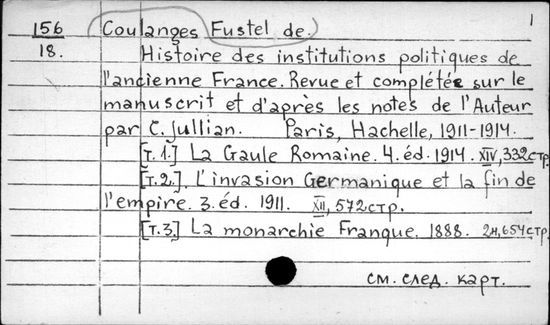 156 Coulanges Fustel de. 1
18. Histoire des institutions politiques de
l'ancienne France. Revue et complétée sur le
manuscrit et d'après les notes de l'Auteur
par C. Jullian. Paris, Hachelle, 1911-1914.
[т. 1.] La Gaule Romaine. 4. éd. 1914. XIV, 332 стр.
[т. 2.] L'invasion Germanique et la fin de
l'empire. 3. éd. 1911. XII, 572 стр.
[т. 3.] La monarchie Franque. 1888. 2н, 654 стр.
см. след. карт.